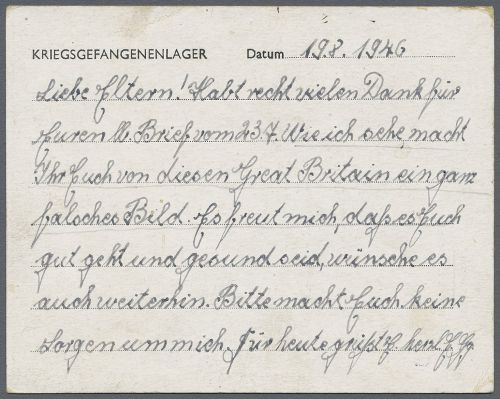 KRIEGSGEFANGENENLAGER Datum 19.8. 1946
Liebe Eltern! Habt recht vielen Dank für
Euren lb. Brief vom 23.7. Wie ich sehe, macht
Ihr Euch von diesen Great Britain ein ganz
falsches Bild. Es freut mich, daß es Euch
gut geht und gesund seid, wünsche es
auch weiterhin. Bitte macht Euch keine
Sorgen um mich. Für heute grüßt E. herzl. E.